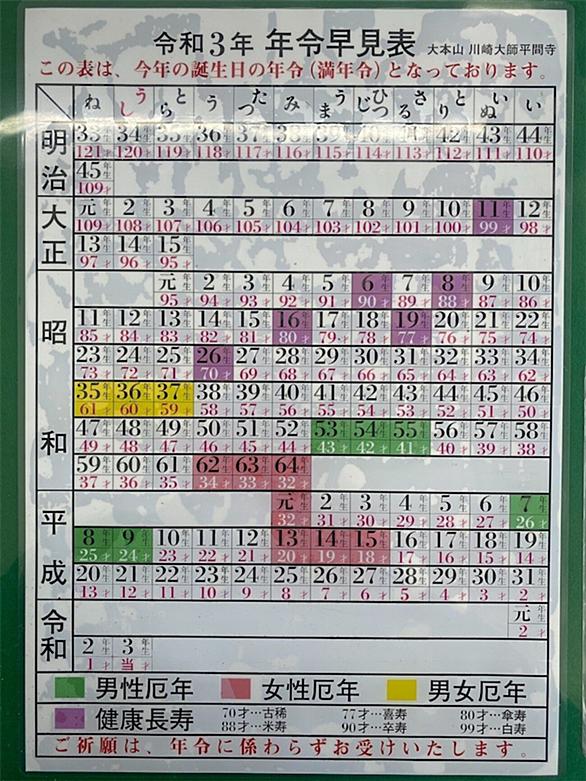 令和3年 年令早見表 大本山 川崎大師平間寺
この表は、今年の誕生日の年令(満年令)となっております。
ね うし とら う たつ み うま ひつじ さる とり いぬ い
明治
33年生 34年生 35年生 36年生 37年生 38年生 39年生 40年生 41年生 42年生 43年生 44年生
121才 120才 119才 118才 117才 116才 115才 114才 113才 112才 111才 110才
45年生
109才
大正
元年生 2年生 3年生 4年生 5年生 6年生 7年生 8年生 9年生 10年生 11年生 12年生
109才 108才 107才 106才 105才 104才 103才 102才 101才 100才 99才 98才
13年生 14年生 15年生
97才 96才 95才
昭和
元年生 2年生 3年生 4年生 5年生 6年生 7年生 8年生 9年生 10年生
95才 94才 93才 92才 91才 90才 89才 88才 87才 86才
11年生 12年生 13年生 14年生 15年生 16年生 17年生 18年生 19年生 20年生 21年生 22年生
85才 84才 83才 82才 81才 80才 79才 78才 77才 76才 75才 74才
23年生 24年生 25年生 26年生 27年生 28年生 29年生 30年生 31年生 32年生 33年生 34年生
73才 72才 71才 70才 69才 68才 67才 66才 65才 64才 63才 62才
35年生 36年生 37年生 38年生 39年生 40年生 41年生 42年生 43年生 44年生 45年生 46年生
61才 60才 59才 58才 57才 56才 55才 54才 53才 52才 51才 50才
47年生 48年生 49年生 50年生 51年生 52年生 53年生 54年生 55年生 56年生 57年生 58年生
49才 48才 47才 46才 45才 44才 43才 42才 41才 40才 39才 38才
59年生 60年生 61年生 62年生 63年生 64年生
37才 36才 35才 34才 33才 32才
平成
元年生 2年生 3年生 4年生 5年生 6年生 7年生
32才 31才 30才 29才 28才 27才 26才
8年生 9年生 10年生 11年生 12年生 13年生 14年生 15年生 16年生 17年生 18年生 19年生
25才 24才 23才 22才 21才 20才 19才 18才 17才 16才 15才 14才
20年生 21年生 22年生 23年生 24年生 25年生 26年生 27年生 28年生 29年生 30年生 31年生
13才 12才 11才 10才 9才 8才 7才 6才 5才 4才 3才 2才
令和
元年生
2才
2年生 3年生
1才 当才
男性厄年 女性厄年 男女厄年
健康長寿
70才…古稀 77才…喜寿 80才…傘寿
88才…米寿 90才…卒寿 99才…白寿
ご祈願は、年令に係わらずお受けいたします。